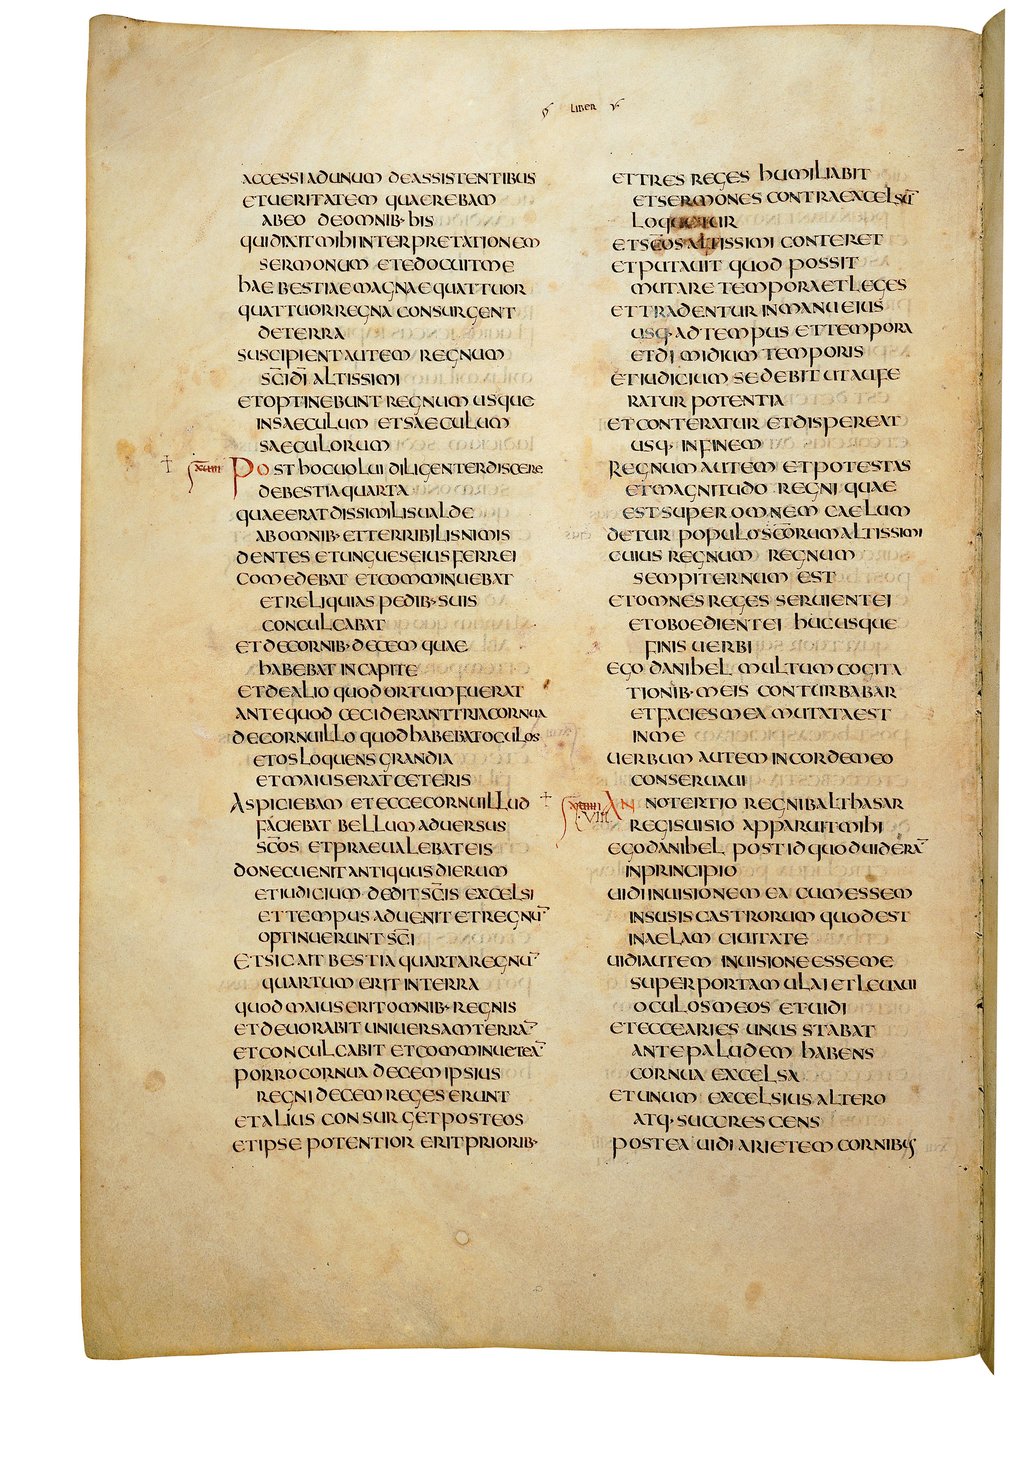 LIBER V
ACCESSI AD UNUM DE ASSISTENTIBUS
ET UERITATEM QUAEREBAM
AB EO DE OMNIB· HIS
QUI DIXIT MIHI INTERPRETATIONEM
SERMONUM ET EDOCUIT ME
HAE BESTIAE MAGNAE QUATTUOR
QUATTUOR REGNA CONSURGENT
DE TERRA
SUSCIPIENT AUTEM REGNUM
SC̄I DĪ ALTISSIMI
ET OPTINEBUNT REGNUM USQUE
IN SAECULUM ET SAECULUM
SAECULORUM
XUIIII POST HOC UOLUI DILIGENTER DISCERE
DE BESTIA QUARTA
QUAE ERAT DISSIMILIS UALDE
AB OMNIB· ET TERRIBILIS NIMIS
DENTES ET UNGUES EIUS FERREI
COMEDEBAT ET COMMINUEBAT
ET RELIQUIAS PEDIB· SUIS
CONCULCABAT
ET DE CORNIB· DECEM QUAE
HABEBAT IN CAPITE
ET DE ALIO QUOD ORTUM FUERAT
ANTE QUOD CECIDERANT TRIA CORNUA
DE CORNU ILLO QUOD HABEBAT OCULOS
ET OS LOQUENS GRANDIA
ET MAIUS ERAT CETERIS
ASPICIEBAM ET ECCE CORNU ILLUD
FACIEBAT BELLUM ADUERSUS
SC̄OS ET PRAEUALEBAT EIS
DONEC UENIT ANTIQUUS DIERUM
ET IUDICIUM DEDIT SC̄IS EXCELSI
ET TEMPUS ADUENIT ET REGNŪ
OPTINUERUNT SC̄I
ET SIC AIT BESTIA QUARTA REGNŪ
QUARTUM ERIT IN TERRA
QUOD MAIUS ERIT OMNIB· REGNIS
ET DEUORABIT UNIUERSAM TERRĀ
ET CONCULCABIT ET COMMINUET EĀ
PORRO CORNUA DECEM IPSIUS
REGNI DECEM REGES ERUNT
ET ALIUS CONSURGET POST EOS
ET IPSE POTENTIOR ERIT PRIORIB·
ET TRES REGES HUMILIABIT
ET SERMONES CONTRA EXCELSŪ
LOQUETUR
ET SC̄OS ALTISSIMI CONTERET
ET PUTAUIT QUOD POSSIT
MUTARE TEMPORA ET LEGES
ET TRADENTUR IN MANU EIUS
USQ· AD TEMPUS ET TEMPORA
ET DIMIDIUM TEMPORIS
ET IUDICIUM SEDEBIT UT AUFE
RATUR POTENTIA
ET CONTERATUR ET DISPEREAT
USQ· IN FINEM
REGNUM AUTEM ET POTESTAS
ET MAGNITUDO REGNI QUAE
EST SUPER OMNEM CAELUM
DETUR POPULO SC̄ORUM ALTISSIMI
CUIUS REGNUM REGNUM
SEMPITERNUM EST
ET OMNES REGES SERUIENT EI
ET OBOEDIENT EI HUCUSQUE
FINIS UERBI
EGO DANIHEL MULTUM COGITA
TIONIB· MEIS CONTURBABAR
ET FACIES MEA MUTATA EST
IN ME
UERBUM AUTEM IN CORDE MEO
CONSERUAUI
VIII AN NO TERTIO REGNI BALTHASAR
REGIS UISIO APPARUIT MIHI
EGO DANIHEL POST ID QUOD UIDERĀ
IN PRINCIPIO
UIDI IN UISIONE MEA CUM ESSEM
IN SUSIS CASTRORUM QUOD EST
IN AELAM CIUITATE
UIDI AUTEM IN UISIONE ESSE ME
SUPER PORTAM ULAI ET LEUAUI
OCULOS MEOS ET UIDI
ET ECCE ARIES UNUS STABAT
ANTE PALUDEM HABENS
CORNUA EXCELSA
ET UNUM EXCELSIUS ALTERO
ATQ· SUCCRESCENS
POSTEA UIDI ARIETEM CORNIBUS